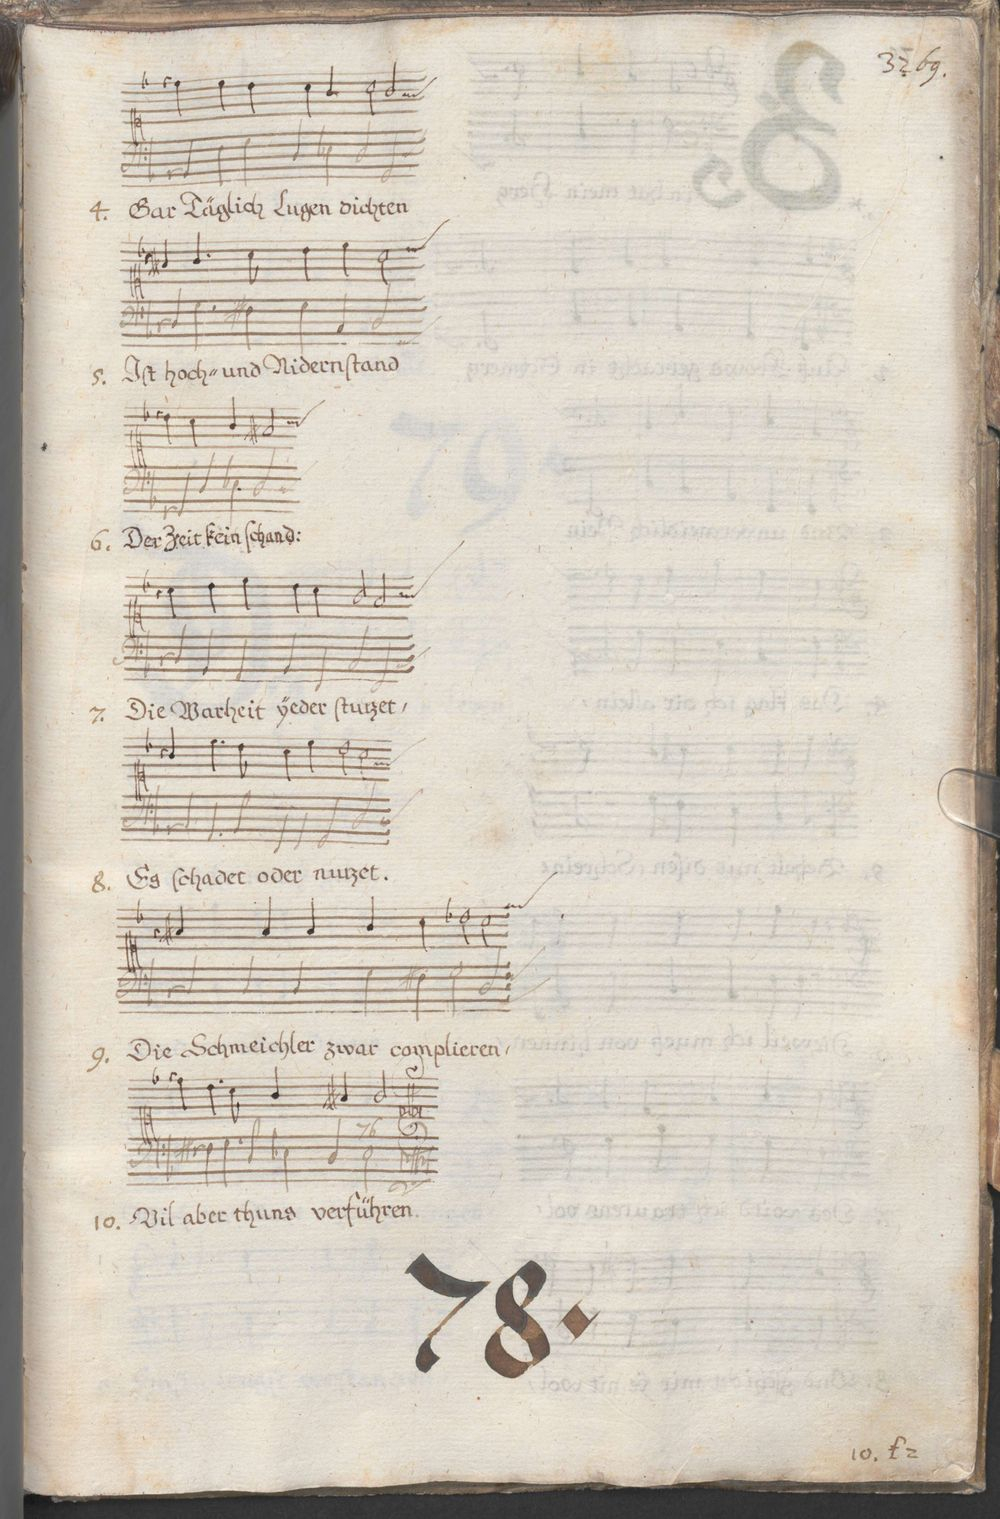 32 69.
4. Gar Täglich Lugen dichten
5. Ist hoch= und Nidernstand
6. Der Zeit kein schand:
7. Die Warheit ÿeder sturzet,
8. Es schadet oder nuzet.
9. Die Schmeichler zwar complieren,
76
10. Vil aber thuns verführen.
78.
10. f2